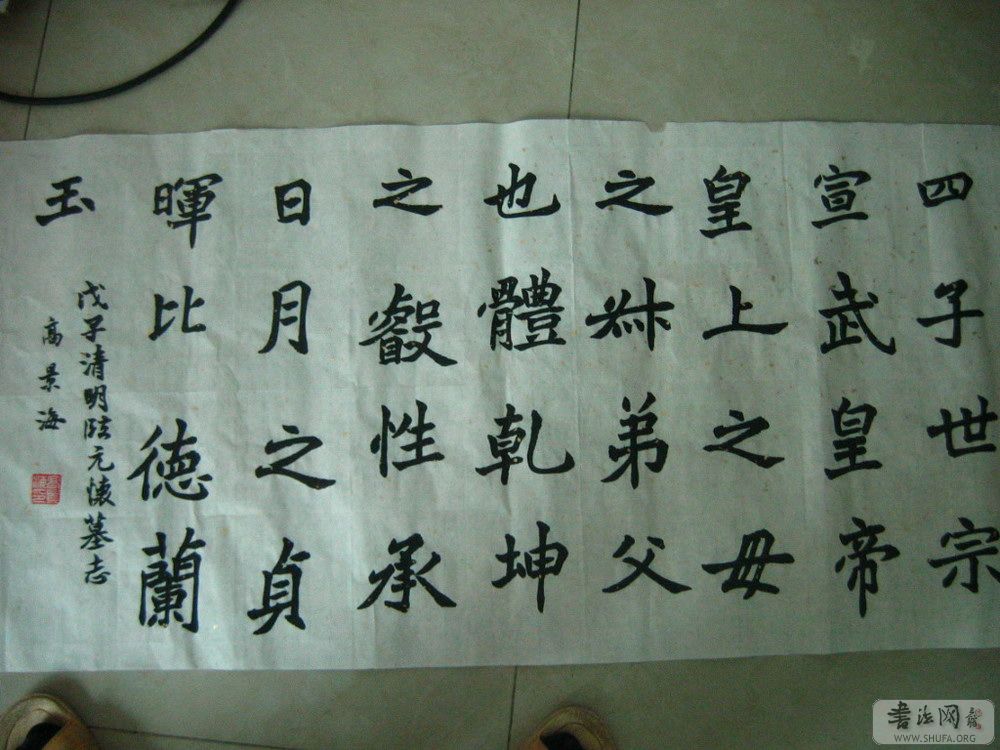 四子世宗
宣武皇帝
皇上之毋
之叔弟父
也體乾坤
之叡性承
日月之貞
暉比德蘭
玉
戊子清明临元懷墓志
高景海
書法网
WWW.SHUFA.ORG